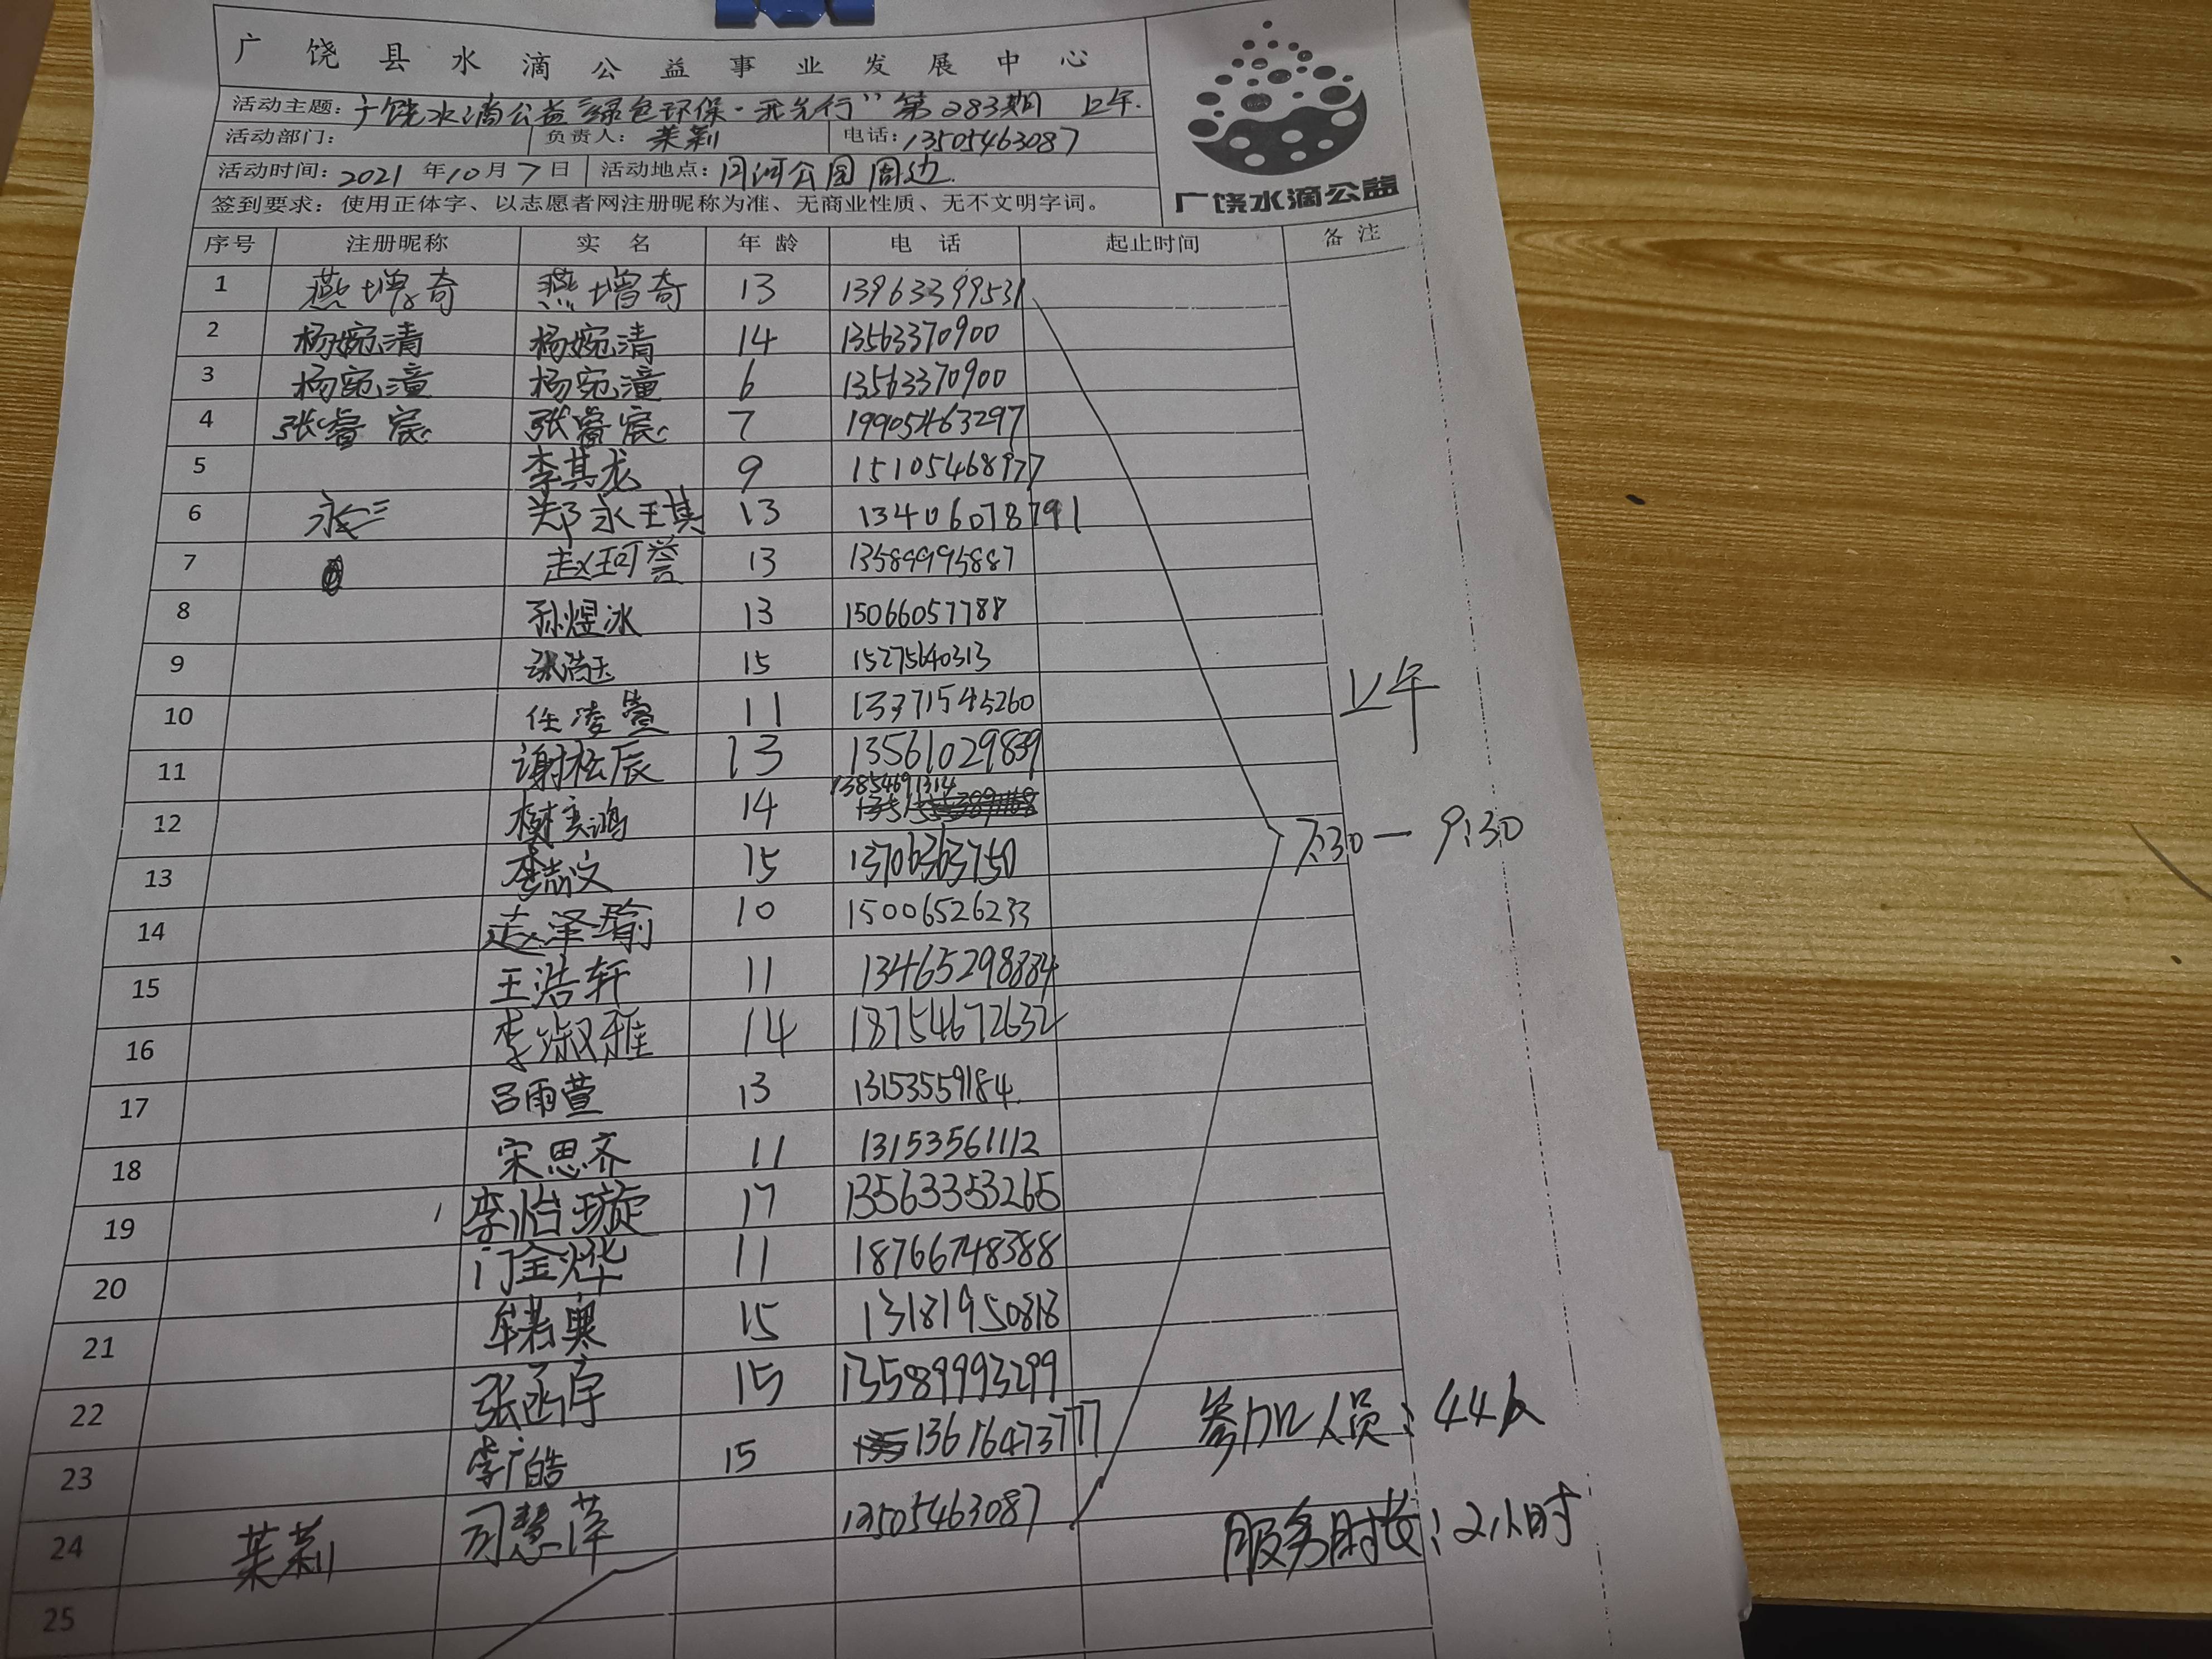 广饶县水滴公益事业发展中心
活动主题：广饶水滴公益“绿色环保·我先行”第283期 上午.
活动部门： 负责人：茉莉 电话：13505463087
活动时间：2021年10月7日 活动地点：月河公园周边.
签到要求：使用正体字、以志愿者网注册昵称为准、无商业性质、无不文明字词。
广饶水滴公益
序号 注册昵称 实名 年龄 电话 起止时间 备注
1 燕增奇 燕增奇 13 13963399531
2 杨婉清 杨婉清 14 13563370900
3 杨宛潼 杨宛潼 6 13563370900
4 张睿宸 张睿宸 7 19905463297
5 李其龙 9 15105468977
6 郑永琪 13 13406078791
7 赵珂誉 13 13589995887
8 孙煜冰 13 15066057788
9 15 15275640313
上午
10 任凌萱 11 13371545260
11 谢松辰 13 13561029839
12 14 13854691314
7:30一9:30
13 15 13706363750
14 赵泽瑜 10 15006526233
15 王浩轩 11 13465298834
16 李淑雅 14 18754672632
17 吕雨萱 13 13153559184.
18 宋思齐 11 13153561112
19 李怡璇 17 13563353265
20 门金烨 11 18766748388
21 牟若奥 15 13181950818
22 张函宇 15 13589993299
参加人员：44人
23 李广皓 15 13616473777
24 茉莉 司慧萍 13505463087
服务时长：2小时
25